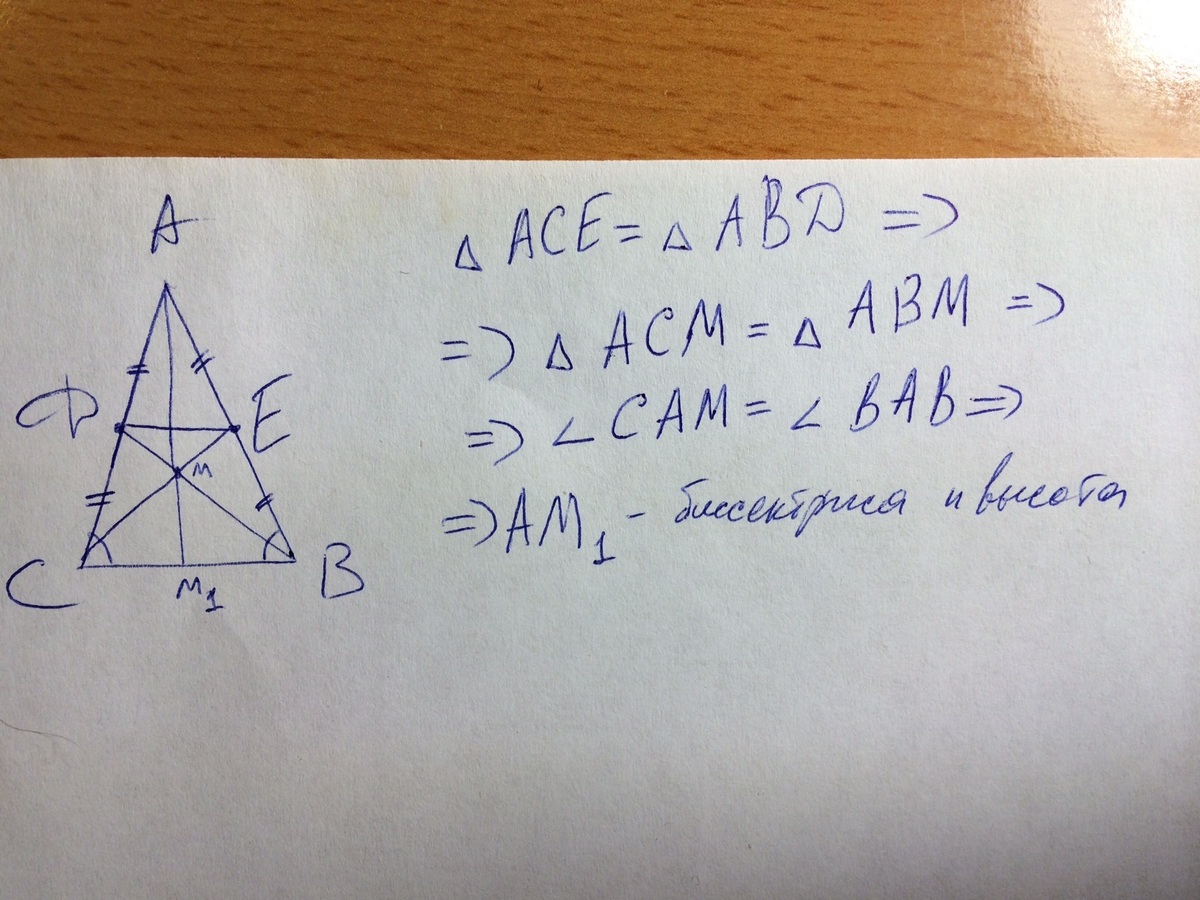 A
D
E
M
C
M₁
B
△ ACE = △ ABD =>
=> △ ACM = △ ABM =>
=> ∠ CAM = ∠ BAB =>
=> AM₁ - биссектриса и высота